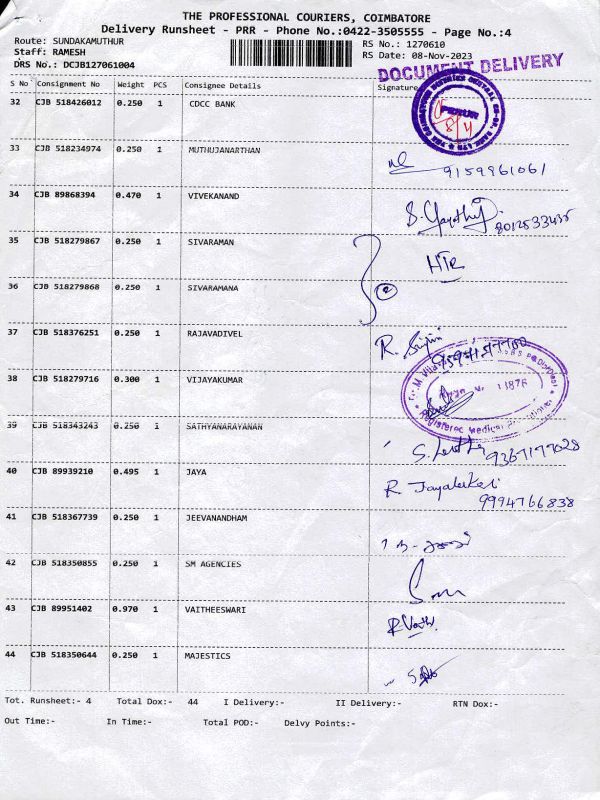 THE PROFESSIONAL COURIERS, COIMBATORE
Delivery Runsheet - PRR - Phone No.:0422-3505555 - Page No.:4
Route: SUNDAKAMUTHUR RS No.: 1270610
Staff: RAMESH RS Date: 08-Nov-2023
DRS No.: DCJB127061004
DOCUMENT DELIVERY
S No Consignment No Weight PCS Consignee Details Signature
32 CJB 518426012 0.250 1 CDCC BANK
33 CJB 518234974 0.250 1 MUTHUJANARTHAN
9159961061
34 CJB 89868394 0.470 1 VIVEKANAND
8012533435
35 CJB 518279867 0.250 1 SIVARAMAN
36 CJB 518279868 0.250 1 SIVARAMANA
37 CJB 518376251 0.250 1 RAJAVADIVEL
38 CJB 518279716 0.300 1 VIJAYAKUMAR
Registered Medical Practitioner
39 CJB 518343243 0.250 1 SATHYANARAYANAN
9367177028
40 CJB 89939210 0.495 1 JAYA
9994766838
41 CJB 518367739 0.250 1 JEEVANANDHAM
42 CJB 518350855 0.250 1 SM AGENCIES
43 CJB 89951402 0.970 1 VAITHEESWARI
44 CJB 518350644 0.250 1 MAJESTICS
Tot. Runsheet:- 4 Total Dox:- 44 I Delivery:- II Delivery:- RTN Dox:-
Out Time:- In Time:- Total POD:- Delvy Points:-